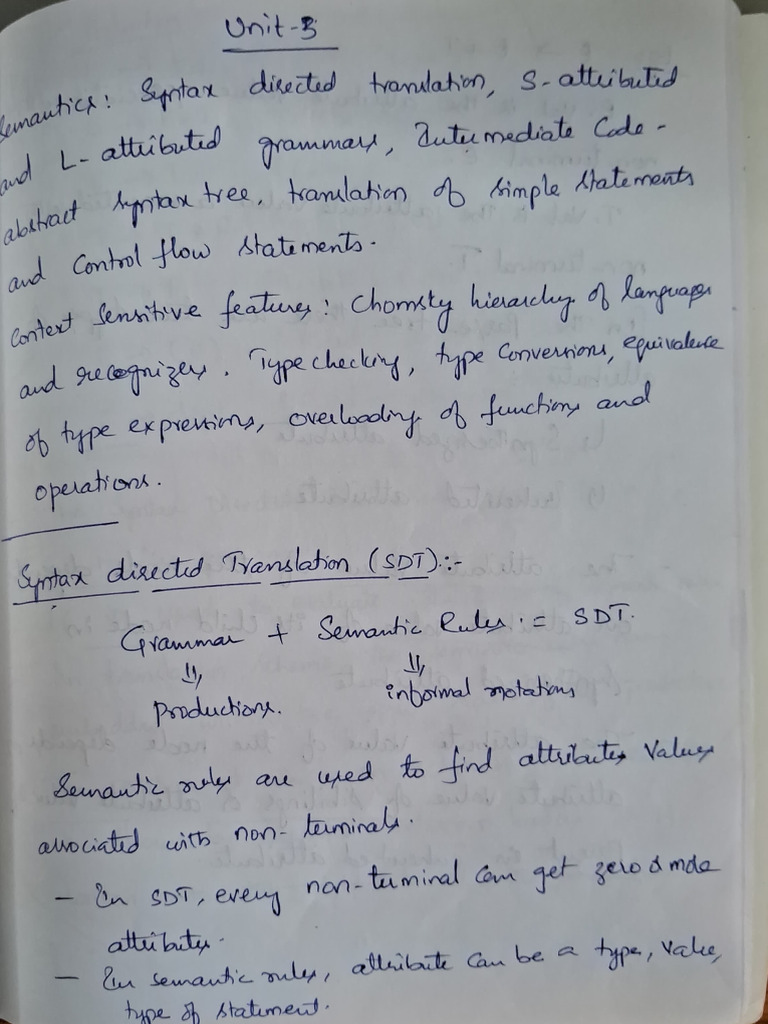 Unit-3
Semantics: Syntax directed translation, S-attributed
and L-attributed grammars, Intermediate Code -
abstract syntax tree, translation of simple statements
and Control flow statements.
Context Sensitive features: Chomsky hierarchy of languages
and recognizers. Type checking, type Conversions, equivalence
of type expressions, overloading of functions and
operations.
Syntax directed Translation (SDT):-
Grammar + Semantic Rules = SDT.
⇓ ⇓
Productions. informal notations
Semantic rules are used to find attributes Values
associated with non-terminals.
- In SDT, every non-terminal can get zero or more
attributes.
- In semantic rules, attribute can be a type, value,
type of statement.